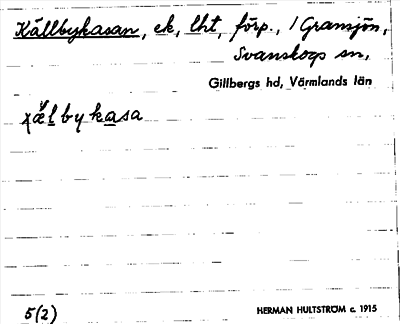 Källbykasan, ek, lht, förp., / Gransjön,
Svanskogs sn,
Gillbergs hd, Värmlands län
χälbykasa
5(2)
HERMAN HULTSTRÖM c. 1915